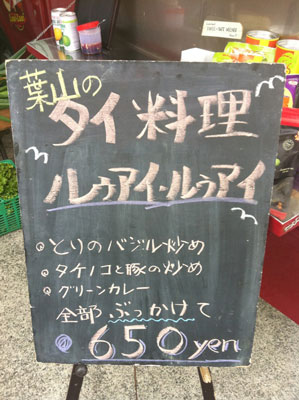 葉山の
タイ料理
ルゥアイ・ルゥアイ
とりのバジル炒め
タケノコと豚の炒め
グリーンカレー
全部ぶっかけて
650yen